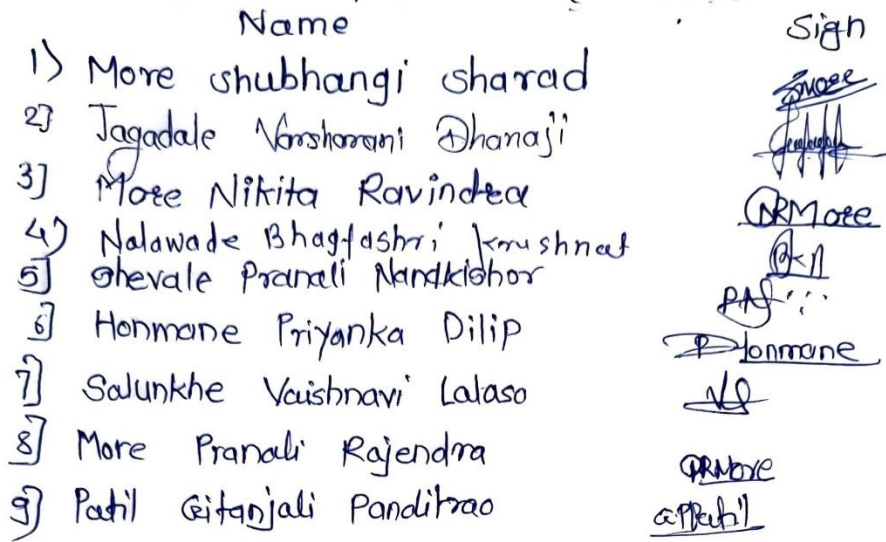 Name Sign
1) More shubhangi sharad SMore
2] Jagadale Varsharani Dhanaji
3] More Nikita Ravindra NRMore
4) Nalawade Bhagyashri Krushnat
5] Shevale Pranali Nandkishor
6] Honmane Priyanka Dilip PHonmane
7] Salunkhe Vaishnavi Lalaso
8] More Pranali Rajendra PRMore
9] Patil Gitanjali Panditrao GPPatil